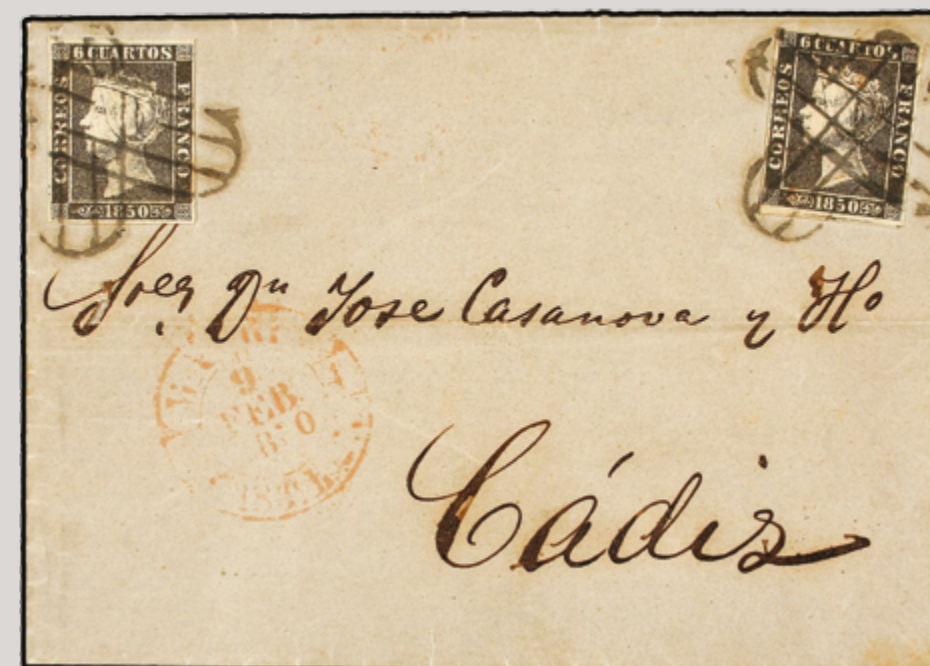 6 CUARTOS
CORREOS
FRANCO
1850
6 CUARTOS
CORREOS
FRANCO
1850
Sres Dn Jose Casanova y Ho
9
FEB
Cádiz